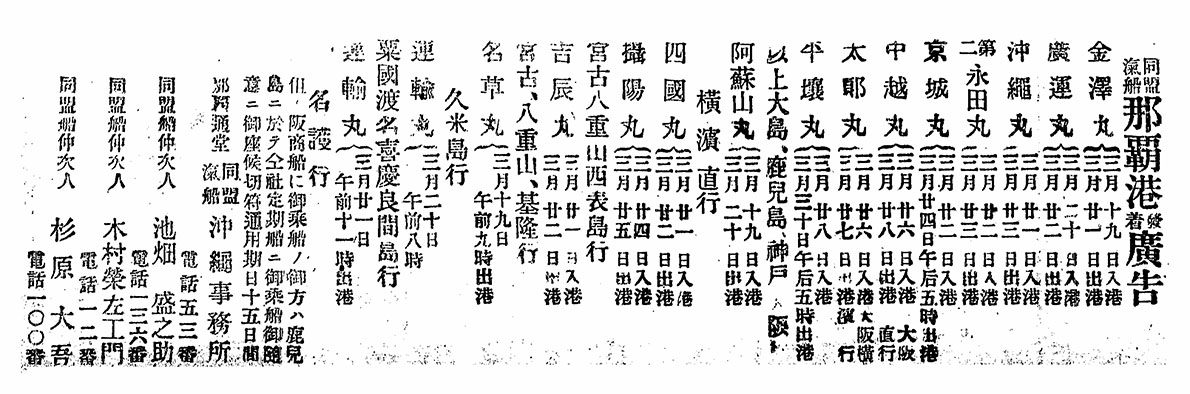 同盟
汽船
那覇港發着廣告
金澤丸 三月十九日入港
三月廿一日出港
廣運丸 三月二十日入港
三月廿二日出港
沖繩丸 三月廿一日入港
三月廿三日出港
第二永田丸 三月廿二日入港
京城丸 三月廿四日午后五時出港
中越丸 三月廿六日入港 大阪
三月廿八日出港 直行
太郎丸 三月廿六日入港 大阪横
三月廿七日出港 濱行
平壤丸 三月廿八日入港
三月三十日午后五時出港
以上大島、鹿兒島、神戸、大阪行
横濱直行
阿蘇山丸 三月十九日入港
三月二十日出港
四國丸 三月廿一日入港
三月廿二日出港
攝陽丸 三月廿四日入港
三月廿五日出港
宮古八重山西表島行
吉辰丸 三月廿一日入港
三月廿二日出港
宮古、八重山、基隆行
名草丸 三月十九日
午前九時出港
久米島行
運輸丸 三月二十日
午前八時
粟國渡名喜慶良間島行
運輸丸 三月廿一日
午前十一時出港
名護行
但シ阪商船に御乘船ノ御方ハ鹿兒
島ニ於テ仝社定期船ニ御乘船御隨
意ニ御座候切符通用期日十五日間
那覇通堂 同盟汽船 沖繩事務所
電話五三番
同盟船仲次人 池畑盛之助
電話一三六番
同盟船仲次人 木村榮左工門
電話一二番
同盟船仲次人 杉原大吾
電話一〇〇番